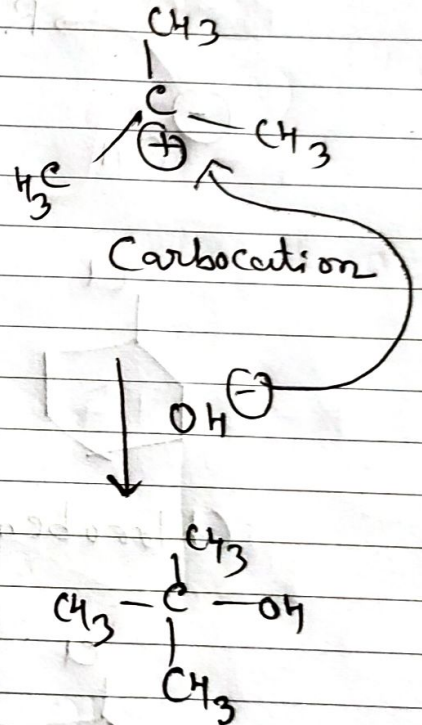 CH3
C
⊕
CH3
H3C
Carbocation
OH ⊖
CH3
CH3 — C — OH
CH3